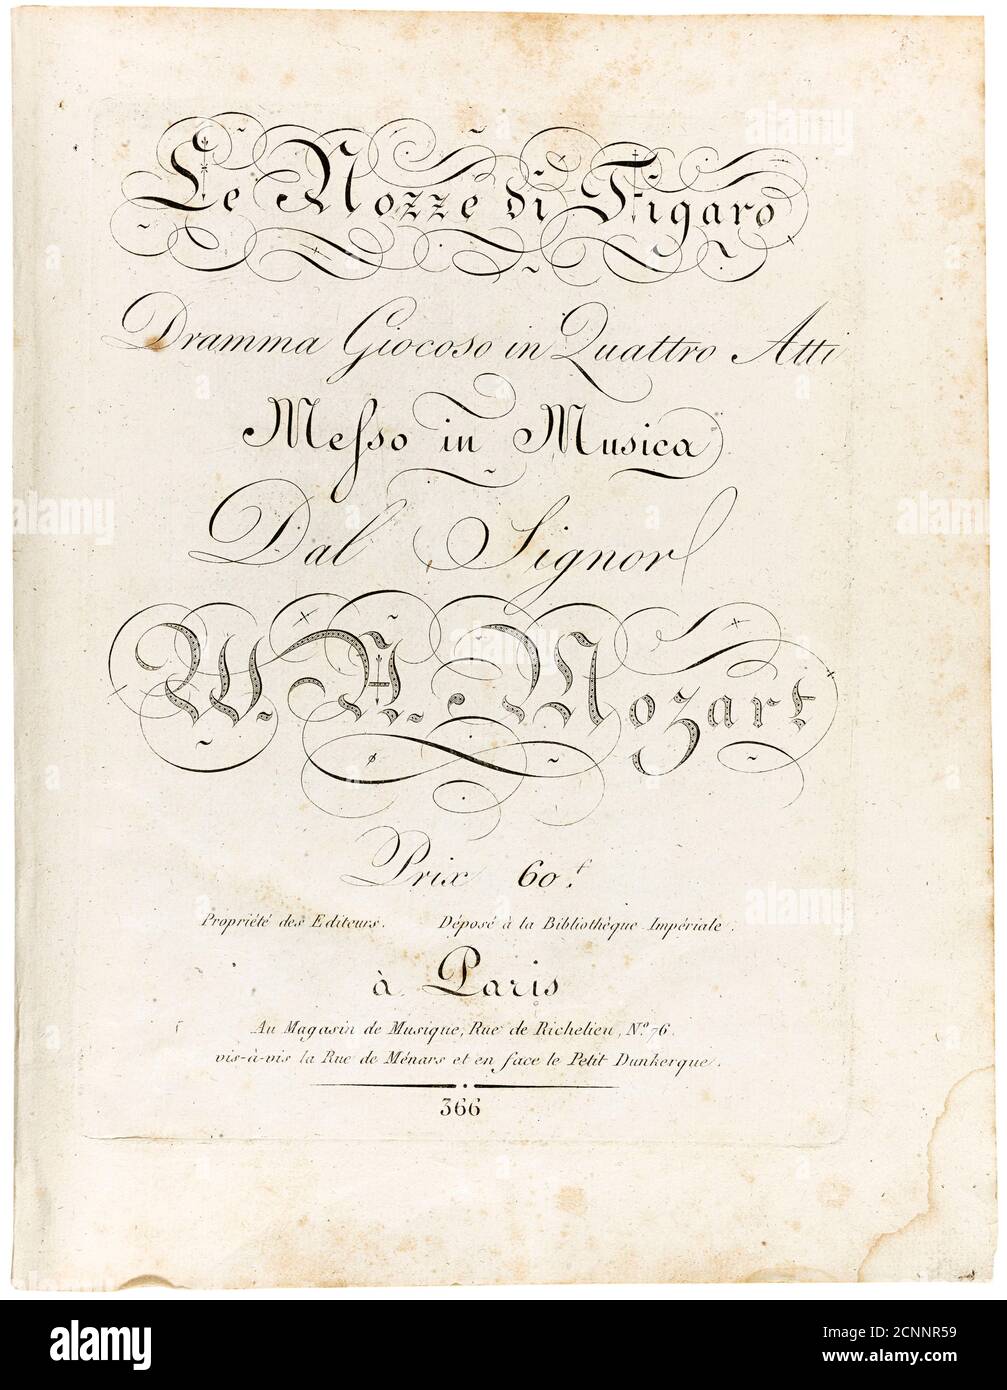 Le Nozze di Figaro
Dramma Giocoso in Quattro Atti
Meſso in Musica
Dal Signor
W. A. Mozart
Prix 60.f
Propriété des Editeurs. Déposé à la Bibliothèque Impériale.
à Paris
Au Magasin de Musique, Rue de Richelieu, N.o 76.
vis-à-vis la Rue de Ménars et en face le Petit Dunkerque.
366
alamy
Image ID: 2CNNR59
www.alamy.com